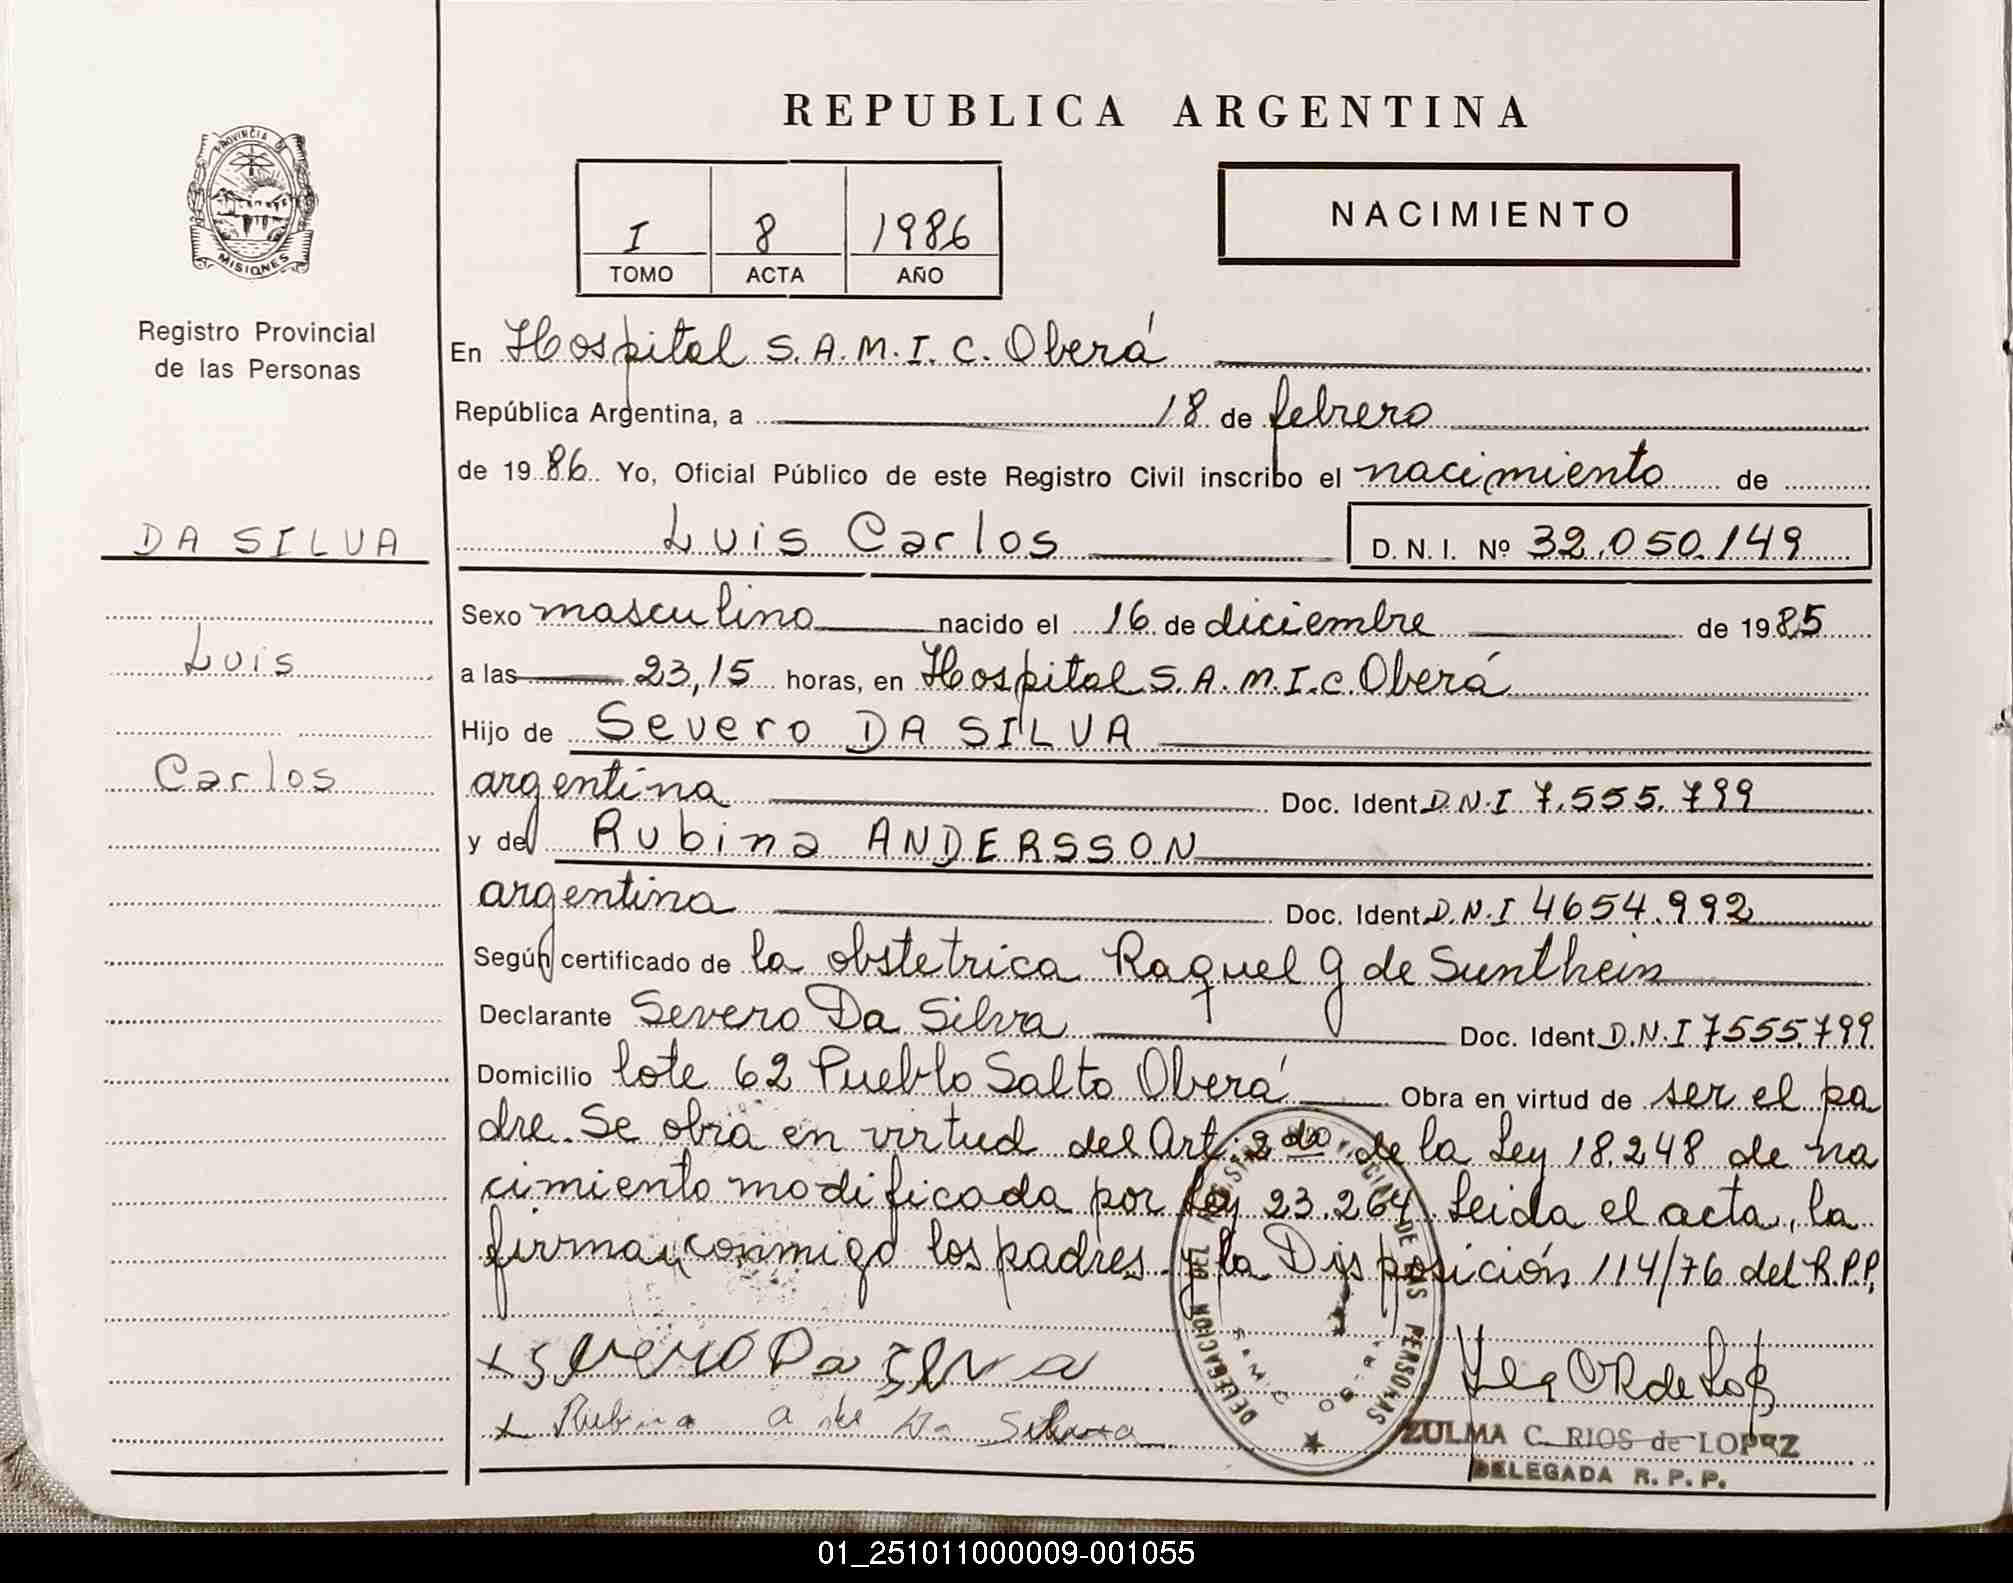 REPUBLICA ARGENTINA
PROVINCIA DE
MISIONES
Registro Provincial
de las Personas
DA SILVA
Luis
Carlos
I 8 1986
TOMO ACTA AÑO
NACIMIENTO
En Hospital S.A.M.I.C. Oberá
República Argentina, a 18 de febrero
de 1986 Yo, Oficial Público de este Registro Civil inscribo el nacimiento de
Luis Carlos D.N.I. Nº 32.050.149
Sexo masculino nacido el 16 de diciembre de 1985
a las 23,15 horas, en Hospital S.A.M.I.C. Oberá
Hijo de Severo DA SILVA
argentina Doc. Ident. D.N.I 7.555.799
y de Rubina ANDERSSON
argentina Doc. Ident. D.N.I 4654.992
Según certificado de la obstetrica Raquel G de Sunthein
Declarante Severo Da Silva Doc. Ident. D.N.I 7555.799
Domicilio lote 62 Pueblo Salto Oberá Obra en virtud de ser el pa
dre. Se obra en virtud del Art. 2do de la Ley 18.248 de na
cimiento modificada por Ley 23.264. Leida el acta, la
firman conmigo los padres. y la Disposición 114/76 del R.P.P.
x Severo Da Silva
x Rubina A de Da Silva
DELEGACION DEL REGISTRO PROVINCIAL DE LAS PERSONAS
SAMIC OBERA
ZULMA C. RIOS de LOPEZ
DELEGADA R.P.P.
01_251011000009-001055